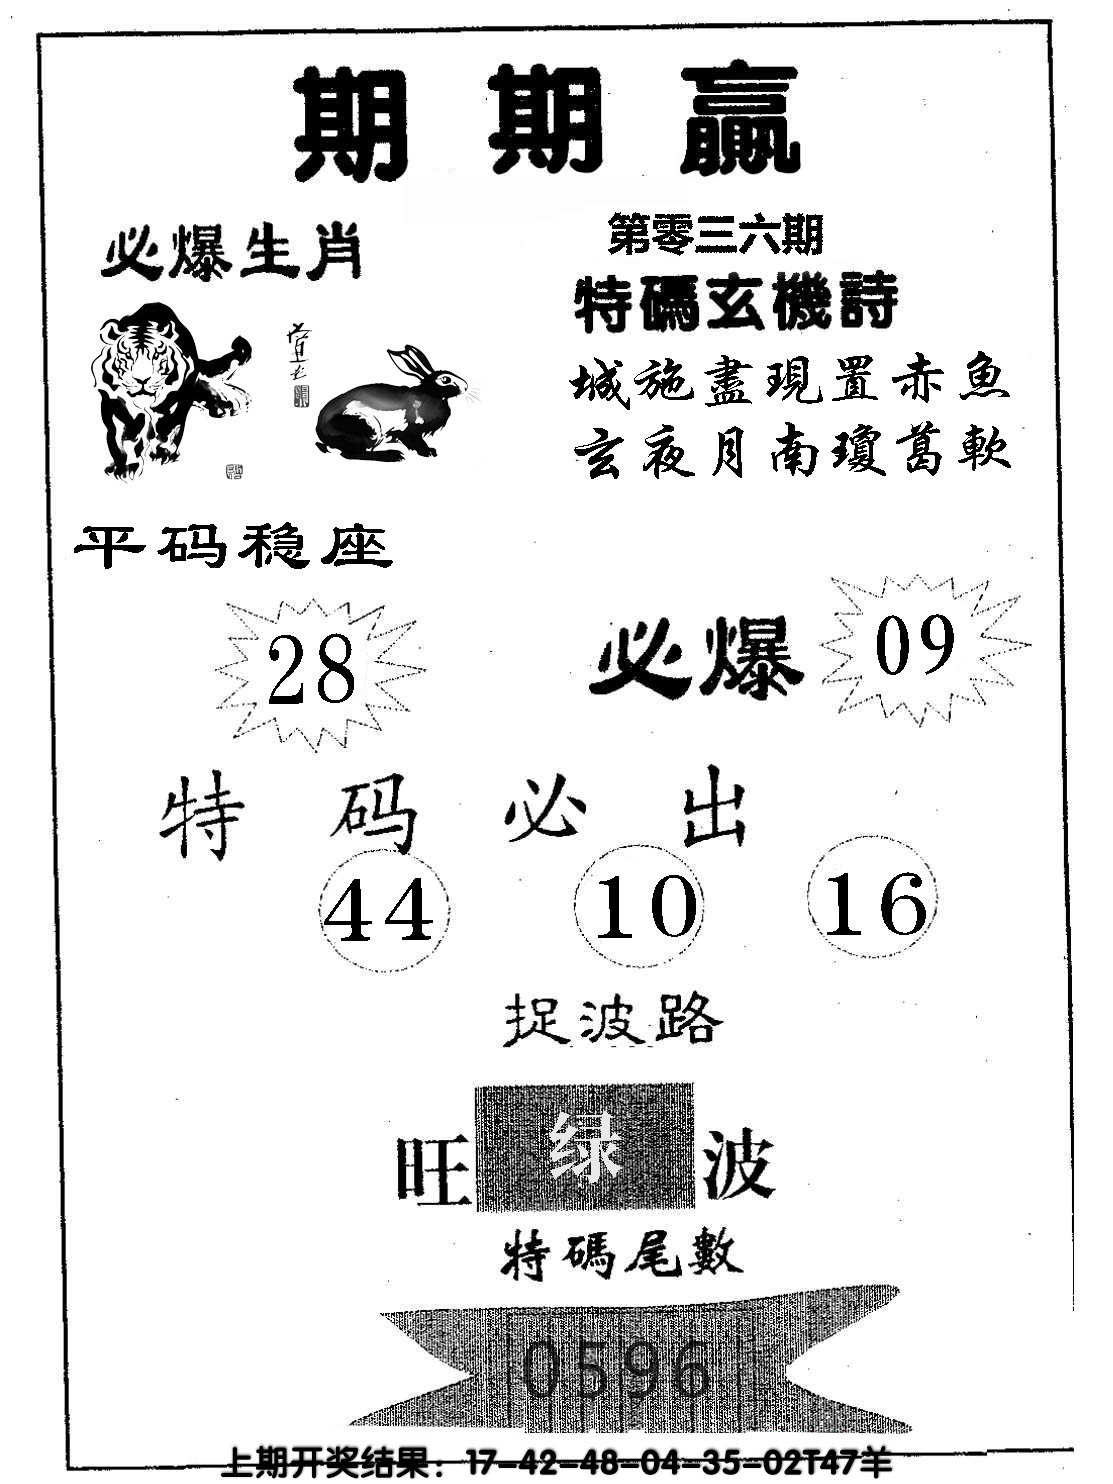 期期赢
必爆生肖
第零三六期
特碼玄機詩
城施盡現置赤魚
玄夜月南瓊葛軟
平码稳座
28
必爆
09
特码必出
44
10
16
捉波路
旺绿波
特碼尾數
0596
上期开奖结果：17-42-48-04-35-02T47羊